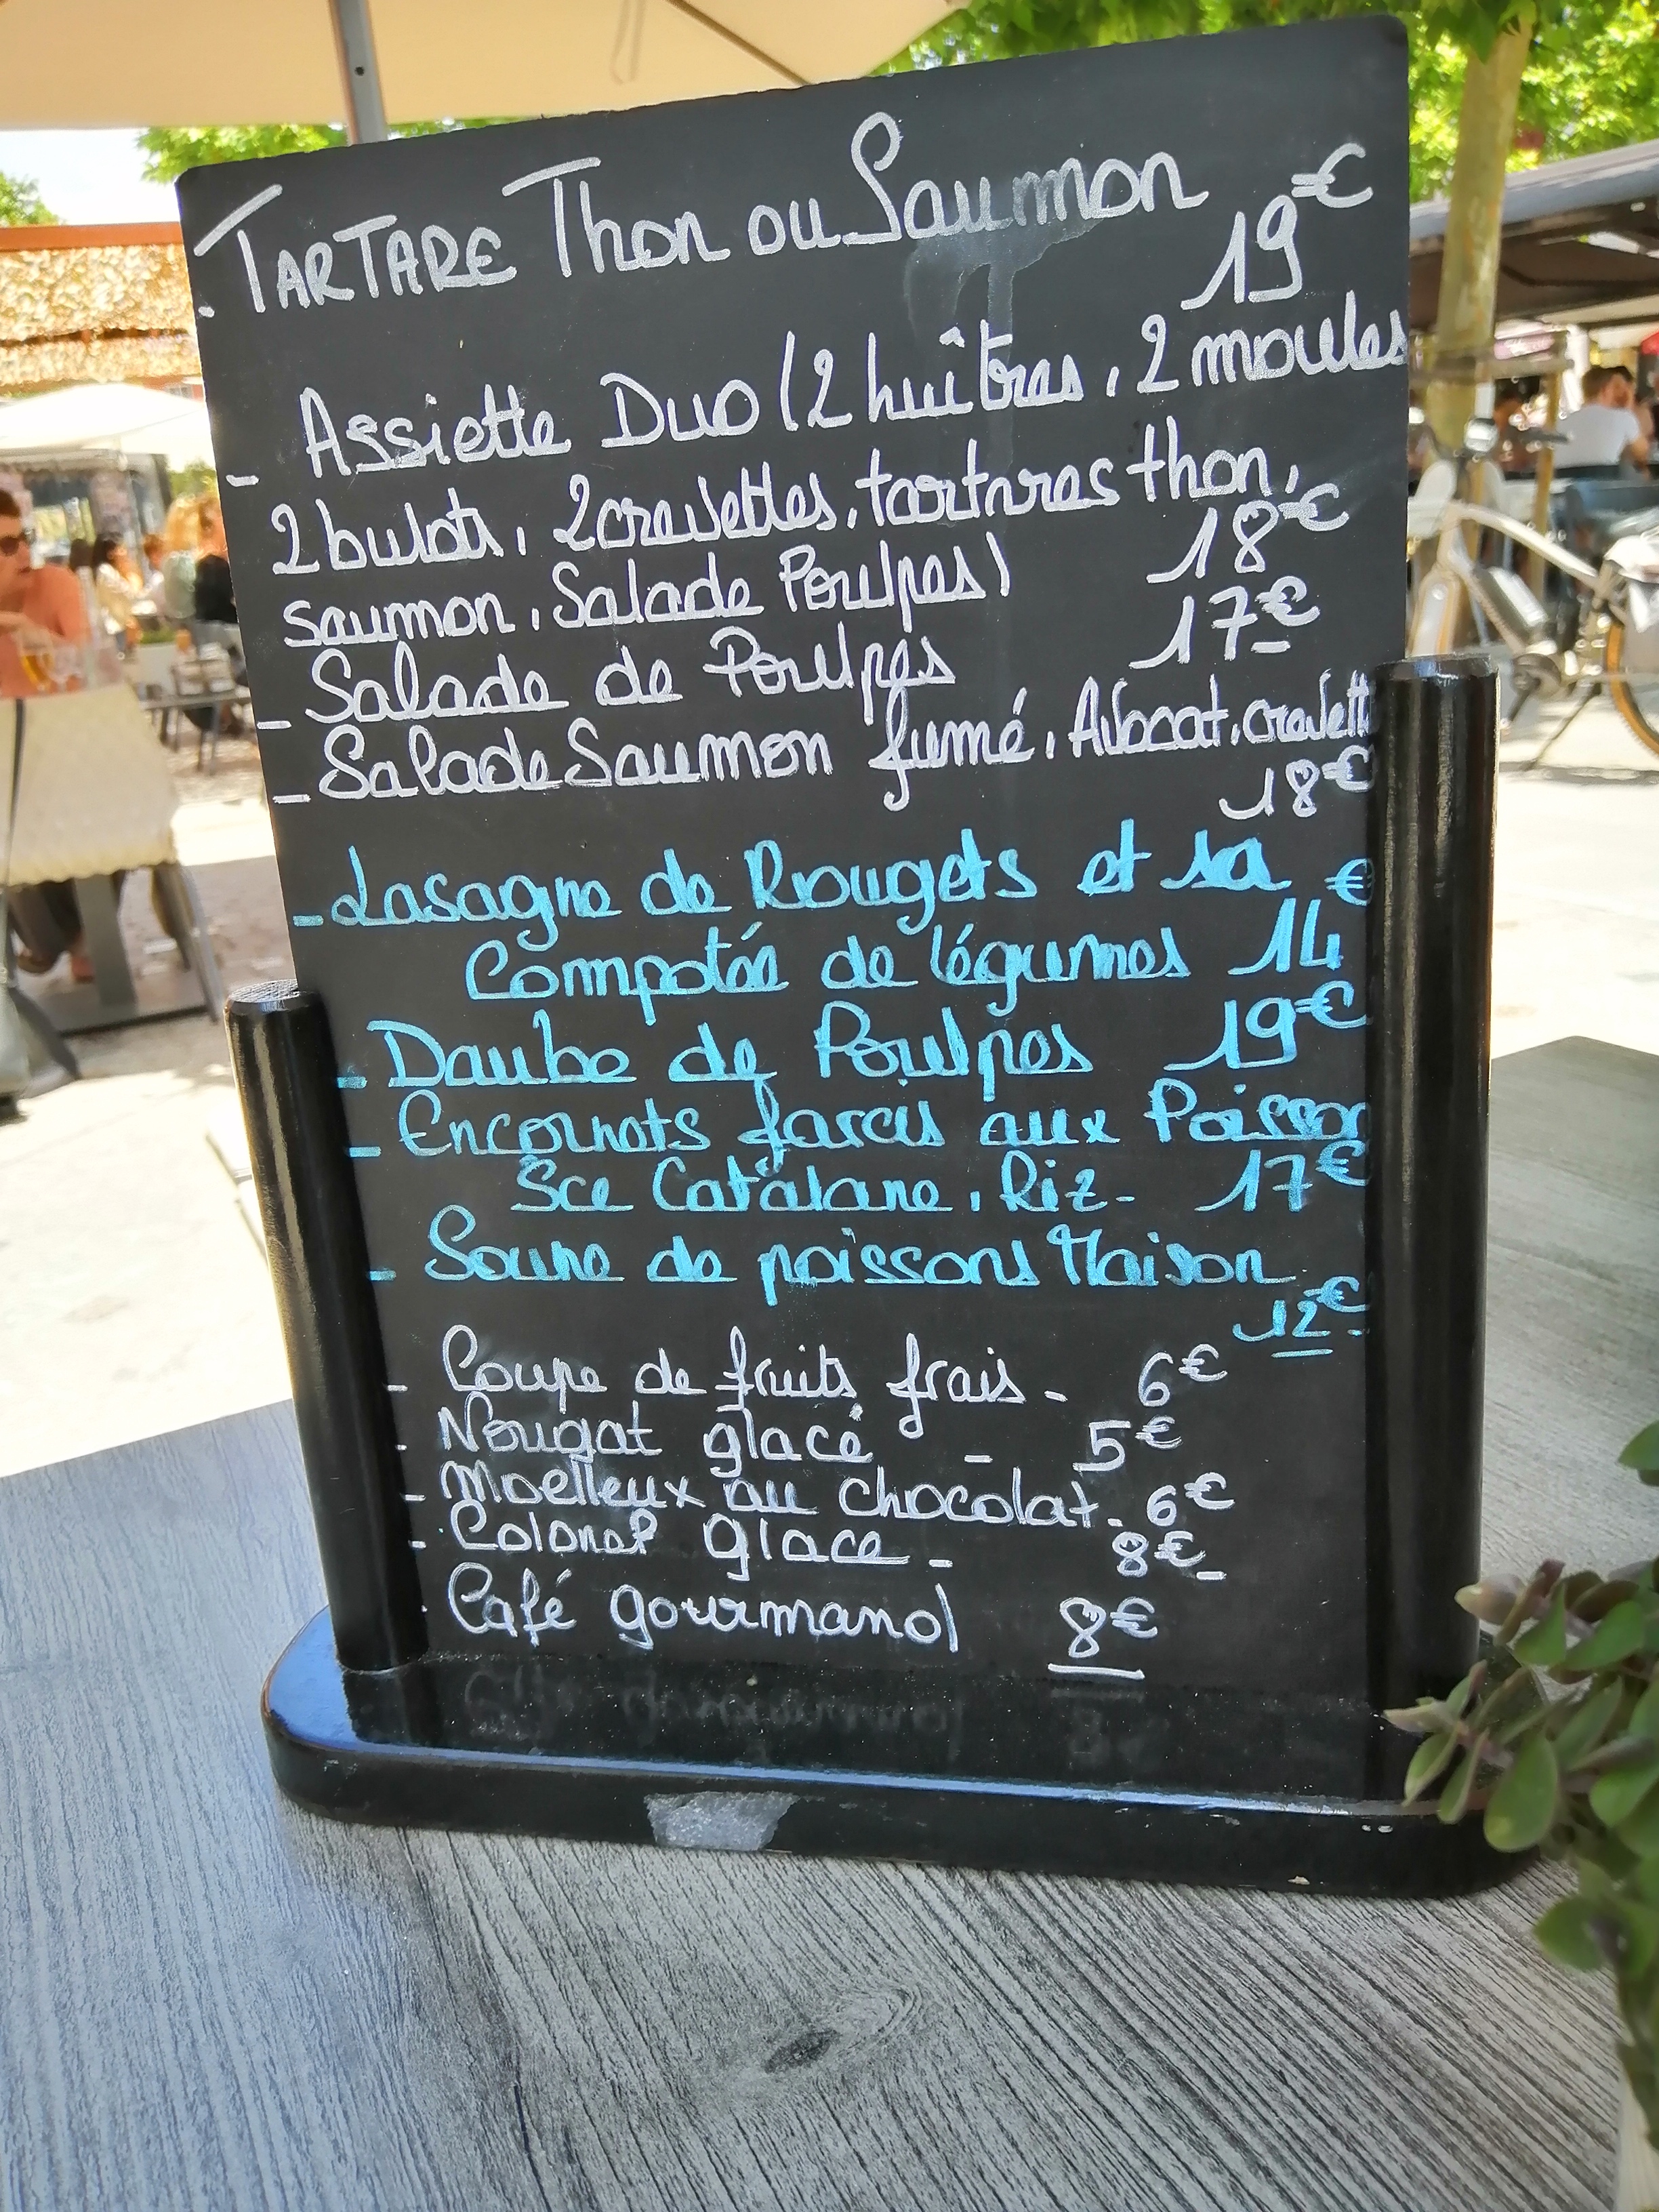 - TARTARE Thon ou Saumon 19€
- Assiette Duo (2 huîtres, 2 moules
2 bulots, 2 crevettes, tartares thon,
saumon, Salade Poulpes) 18€
- Salade de Poulpes 17€
- Salade Saumon fumé, Avocat, crevett
18€
- Lasagne de Rougets et sa
Compotée de légumes 14€
- Daube de Poulpes 19€
- Encornets farcis aux Poisson
Sce Catalane, Riz - 17€
- Soupe de poissons Maison
12€
- Coupe de fruits frais - 6€
- Nougat glacé - 5€
- Moelleux au chocolat - 6€
- Colonel glace - 8€
- Café gourmand 8€